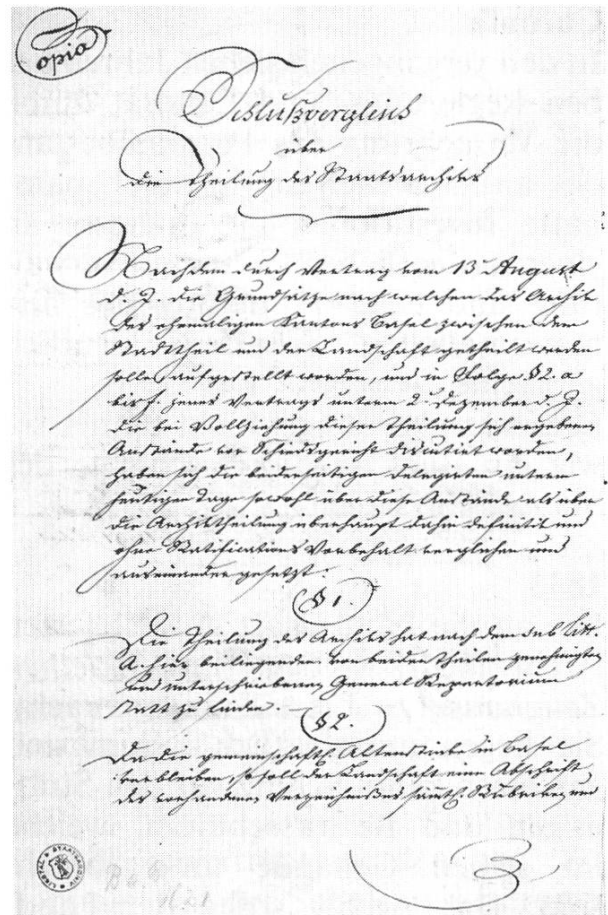 Copia
Schlußvergleich
über
die Theilung des Staatsarchivs
Nachdem durch Vertrag vom 13. August
d. J. die Grundsätze nach welchen das Archiv
des ehemaligen Kantons Basel zwischen dem
Stadttheil und der Landschaft getheilt werden
solle, aufgestellt worden, und in Folge § 2. a
bis f. jenes Vertrags unterm 2. Dezember d. J.
die bei Vollziehung dieser Theilung sich ergebenen
Anstände vor Schiedsgericht discutiert worden,
haben sich die beiderseitigen Delegirten unterm
heutigen Tage sowohl über diese Anstände als über
die Archivtheilung überhaupt dahin definitiv und
ohne Ratifications Vorbehalt verglichen und
auseinander gesetzt.
§ 1.
Die Theilung des Archivs hat nach dem sub Litt.
A. hier beiliegenden von beiden Theilen genehmigten
und unterschriebenen General Repertorium
statt zu finden.
§ 2.
Da die gemeinschaftl. Aktenstücke in Basel
verbleiben, so soll der Landschaft eine Abschrift
des vorhandenen Verzeichnisses sämtl. Rubriken und
STAATSARCHIV
LIESTAL